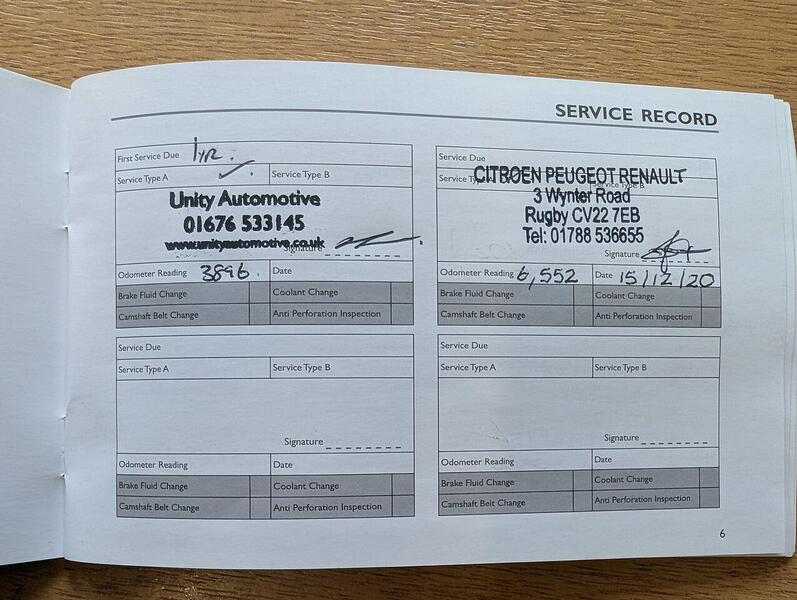 SERVICE RECORD
First Service Due 1yr.
Service Type A ✓. Service Type B
Unity Automotive
01676 533145
www.unityautomotive.co.uk
Signature
Odometer Reading 3896. Date
Brake Fluid Change Coolant Change
Camshaft Belt Change Anti Perforation Inspection
Service Due
Service Type A Service Type B
CITROEN PEUGEOT RENAULT
3 Wynter Road
Rugby CV22 7EB
Tel: 01788 536655
Signature
Odometer Reading 6,552 Date 15/12/20
Brake Fluid Change Coolant Change
Camshaft Belt Change Anti Perforation Inspection
Service Due
Service Type A Service Type B
Signature
Odometer Reading Date
Brake Fluid Change Coolant Change
Camshaft Belt Change Anti Perforation Inspection
Service Due
Service Type A Service Type B
Signature
Odometer Reading Date
Brake Fluid Change Coolant Change
Camshaft Belt Change Anti Perforation Inspection
6